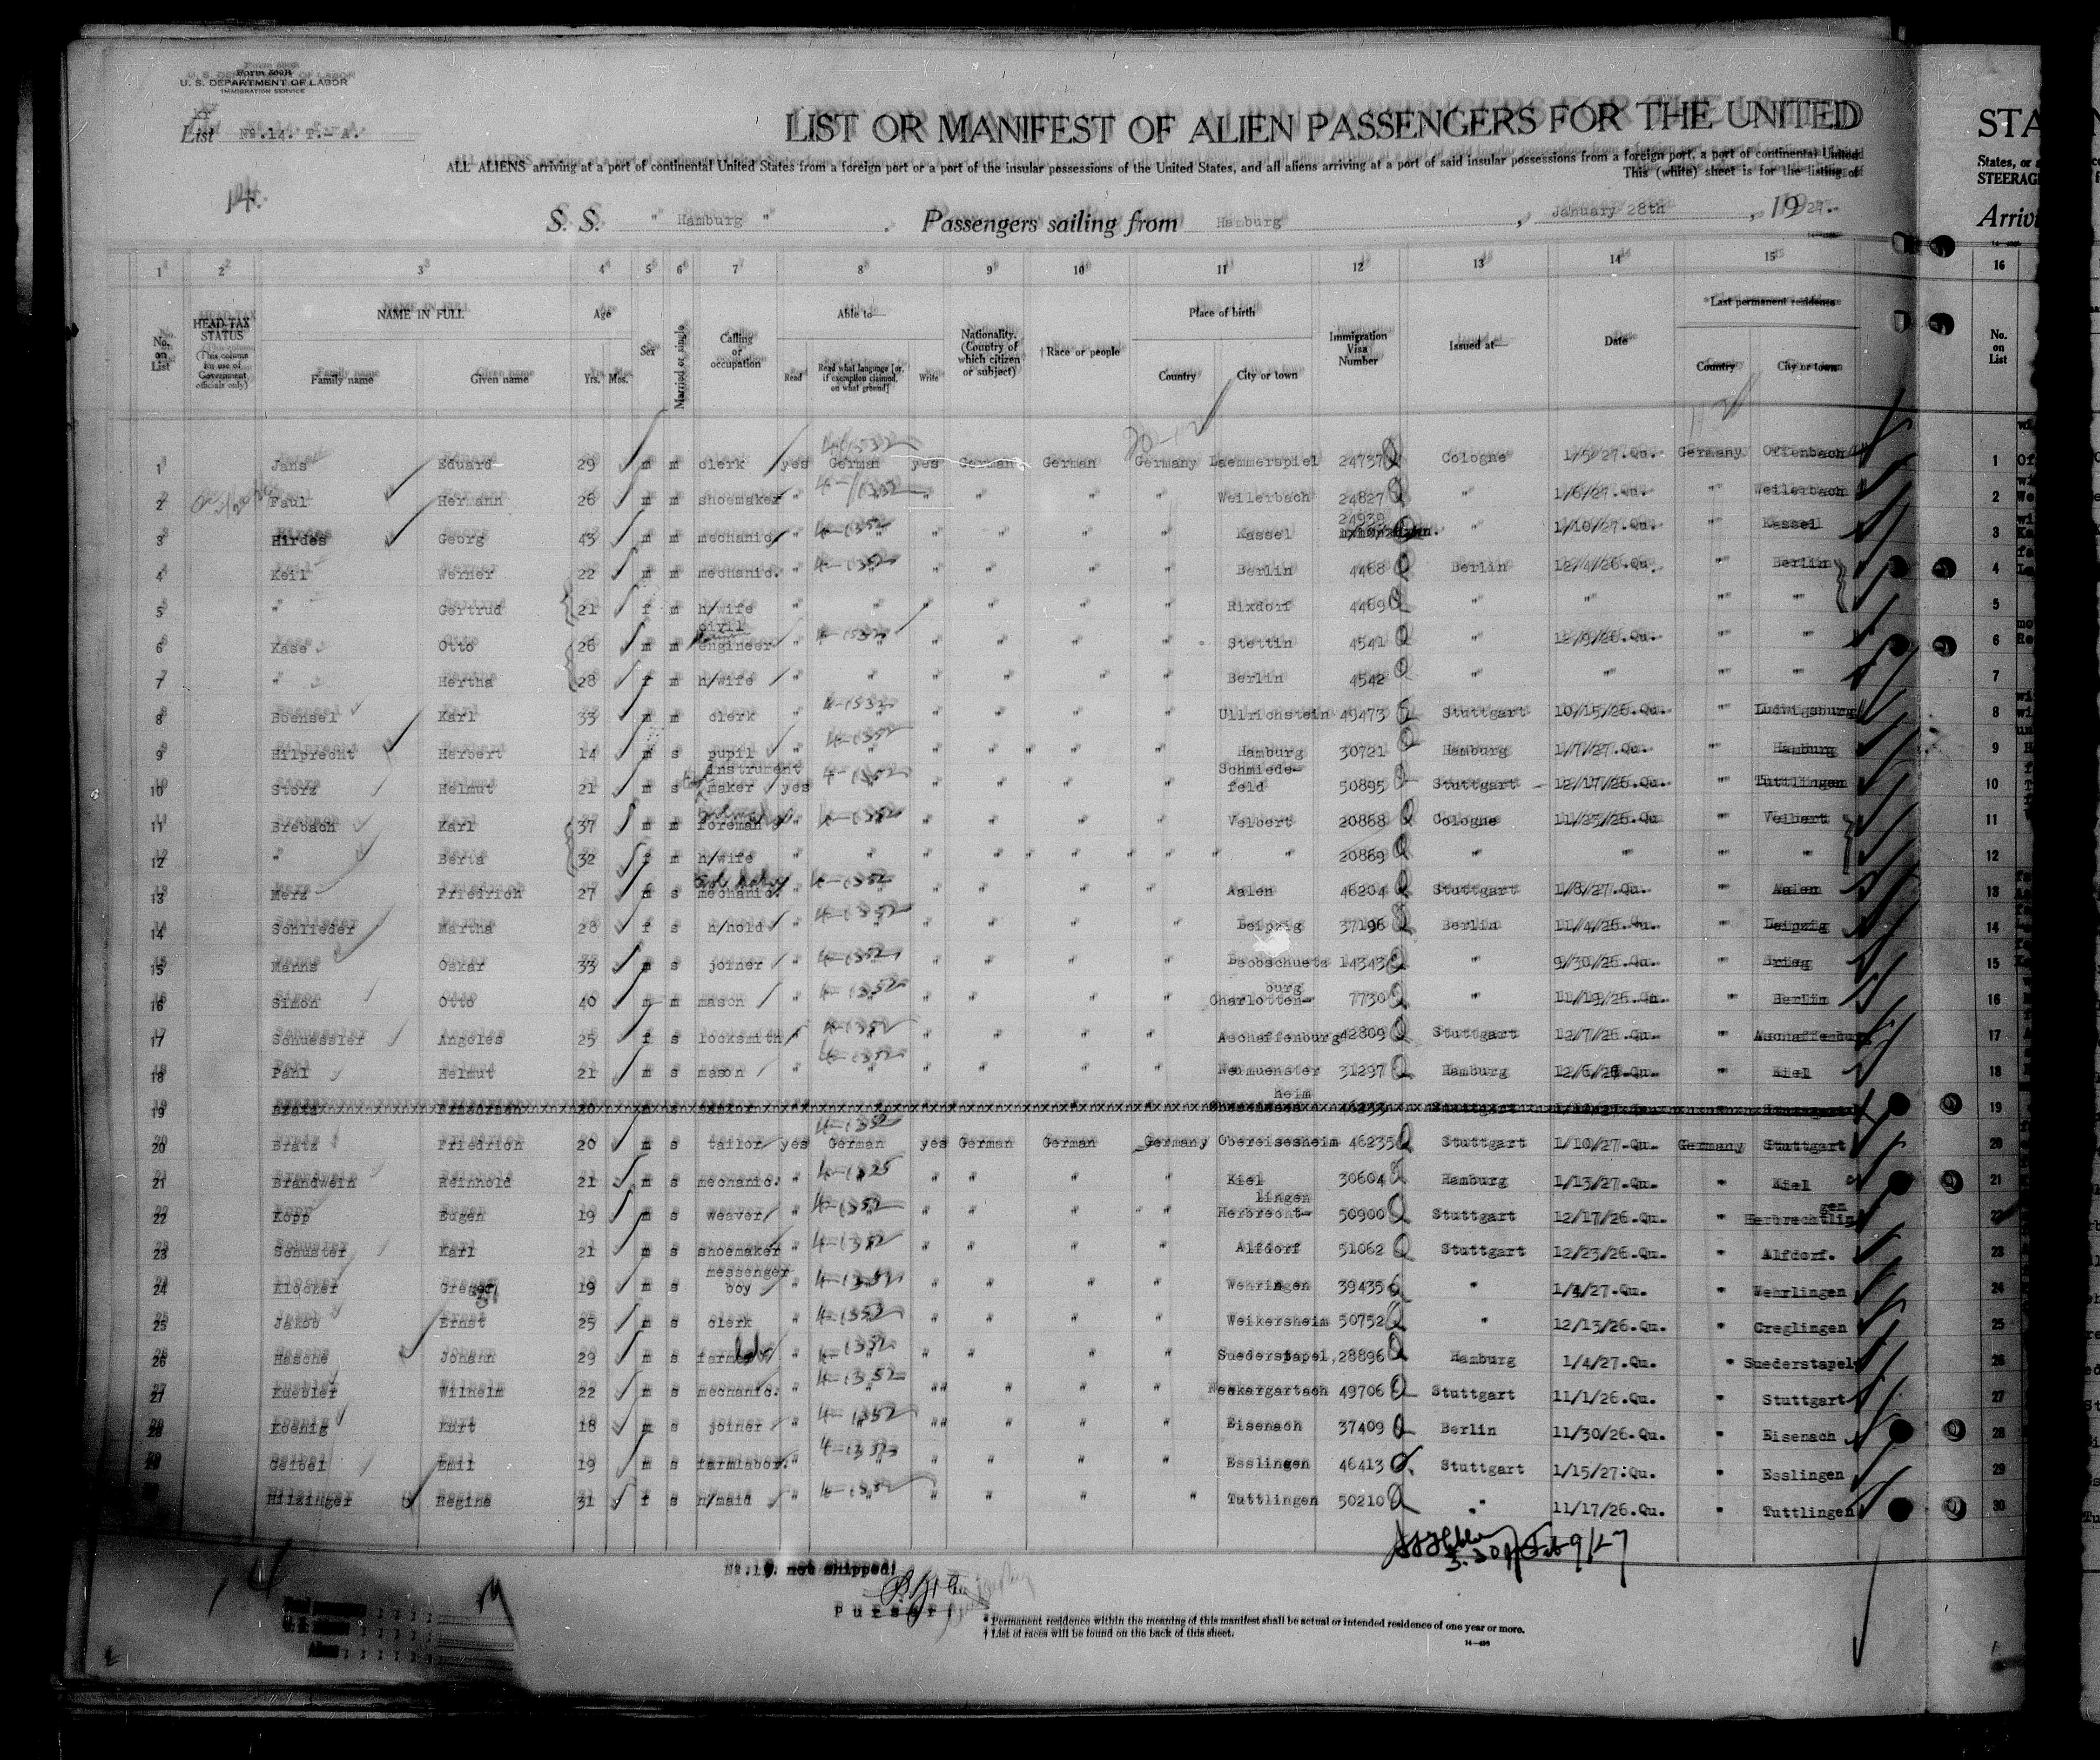 Form 500B
U. S. DEPARTMENT OF LABOR
IMMIGRATION SERVICE
List No. 14. T.- A.
14.
LIST OR MANIFEST OF ALIEN PASSENGERS FOR THE UNITED
ALL ALIENS arriving at a port of continental United States from a foreign port or a port of the insular possessions of the United States, and all aliens arriving at a port of said insular possessions from a foreign port, a port of continental United
This (white) sheet is for the listing of
S. S. " Hamburg " . Passengers sailing from Hamburg , January 28th , 1927.
1 2 3 4 5 6 7 8 9 10 11 12 13 14 15
No. on List HEAD-TAX STATUS (This column for use of Government officials only) NAME IN FULL Family name Given name Age Yrs. Mos. Sex Married or single Calling or occupation Able to— Read Read what language [or, if exemption claimed, on what ground] Write Nationality. (Country of which citizen or subject) † Race or people Place of birth Country City or town Immigration Visa Number Issued at— Date *Last permanent residence Country City or town
1 Jans Eduard 29 m m clerk yes German yes German German Germany Laemmerspiel 24737 Cologne 1/5/27.Qu. Germany Offenbach
2 Faul Hermann 26 m m shoemaker " " " " " " Weilerbach 24827 " 1/6/27.Qu. " Weilerbach
3 Hirdes Georg 43 m m mechanic. " " " " " " Kassel 24939 " 1/10/27.Qu. " Kassel
4 Keil Werner 22 m m mechanic. " " " " " " Berlin 4468 Berlin 12/4/26.Qu. " Berlin
5 " Gertrud 21 f m h/wife " " " " " " Rixdorf 4469 " " " "
6 Kase Otto 26 m m civil engineer " " " " " " Stettin 4541 " 12/9/26.Qu. " "
7 " Hertha 28 f m h/wife " " " " " " Berlin 4542 " " " "
8 Boensel Karl 33 m m clerk " " " " " " Ullrichstein 49473 Stuttgart 10/15/26.Qu. " Ludwigsburg
9 Hilprecht Herbert 14 m s pupil " " " " " " Hamburg 30721 Hamburg 1/7/27.Qu. " Hamburg
10 Storz Helmut 21 m s instrument maker yes " " " " " Schmiede-feld 50895 Stuttgart 12/17/26.Qu. " Tuttlingen
11 Brebach Karl 37 m m foreman " " " " " " Velbert 20868 Cologne 11/25/26.Qu " Velbert
12 " Berta 32 f m h/wife " " " " " " " 20869 " " " "
13 Merz Friedrich 27 m s mechanic. " " " " " " Aalen 46204 Stuttgart 1/8/27.Qu. " Aalen
14 Schlieder Martha 28 f s h/hold " " " " " " Leipzig 37196 Berlin 11/4/26.Qu. " Leipzig
15 Manns Oskar 33 m s joiner " " " " " " Leobschuetz 14343 " 9/30/26.Qu. " Brieg
16 Simon Otto 40 m m mason " " " " " " Charlotten-burg 7730 " 11/19/26.Qu. " Berlin
17 Schuessler Angeles 25 f s locksmith " " " " " " Aschaffenburg 42809 Stuttgart 12/7/26.Qu. " Aschaffenburg
18 Pahl Helmut 21 m s mason " " " " " " Neumuenster 31297 Hamburg 12/6/26.Qu. " Kiel
19 Friedrich 20 m s tailor heim Stuttgart
20 Bratz Friedrich 20 m s tailor yes German yes German German Germany Obereisesheim 46235 Stuttgart 1/10/27.Qu. Germany Stuttgart
21 Brandwein Reinhold 21 m s mechanic. " " " " " " Kiel 30604 Hamburg 1/13/27.Qu. " Kiel
22 Kopp Eugen 19 m s weaver " " " " " " Herbrecht-lingen 50900 Stuttgart 12/17/26.Qu. " Herbrechtlingen
23 Schuster Karl 21 m s shoemaker " " " " " " Alfdorf 51062 Stuttgart 12/23/26.Qu. " Alfdorf.
24 Klocker Gregor 19 m s messenger boy " " " " " " Wehringen 39435 " 1/4/27.Qu. " Wehrlingen
25 Jakob Ernst 25 m s clerk " " " " " " Weikersheim 50752 " 12/13/26.Qu. " Creglingen
26 Hasche Johann 29 m s farm lab. " " " " " " Suederstapel, 28896 Hamburg 1/4/27.Qu. " Suederstapel
27 Kuebler Wilhelm 22 m s mechanic. " " "" " " " Neckargartach 49706 Stuttgart 11/1/26.Qu. " Stuttgart
28 Koenig Kurt 18 m s joiner " " "" " " " Eisenach 37409 Berlin 11/30/26.Qu. " Eisenach
29 Geibel Emil 19 m s farmlabor. " " " " " " Esslingen 46413 Stuttgart 1/15/27:Qu. " Esslingen
30 Hilzinger Regine 31 f s h/maid " " " " " " Tuttlingen 50210 " 11/17/26.Qu. " Tuttlingen
Feb 9/27
No. 19. not shipped!
Purser
* Permanent residence within the meaning of this manifest shall be actual or intended residence of one year or more.
† List of races will be found on the back of this sheet.
STA
States, or a
STEERAG
Arriv
16
No. on List